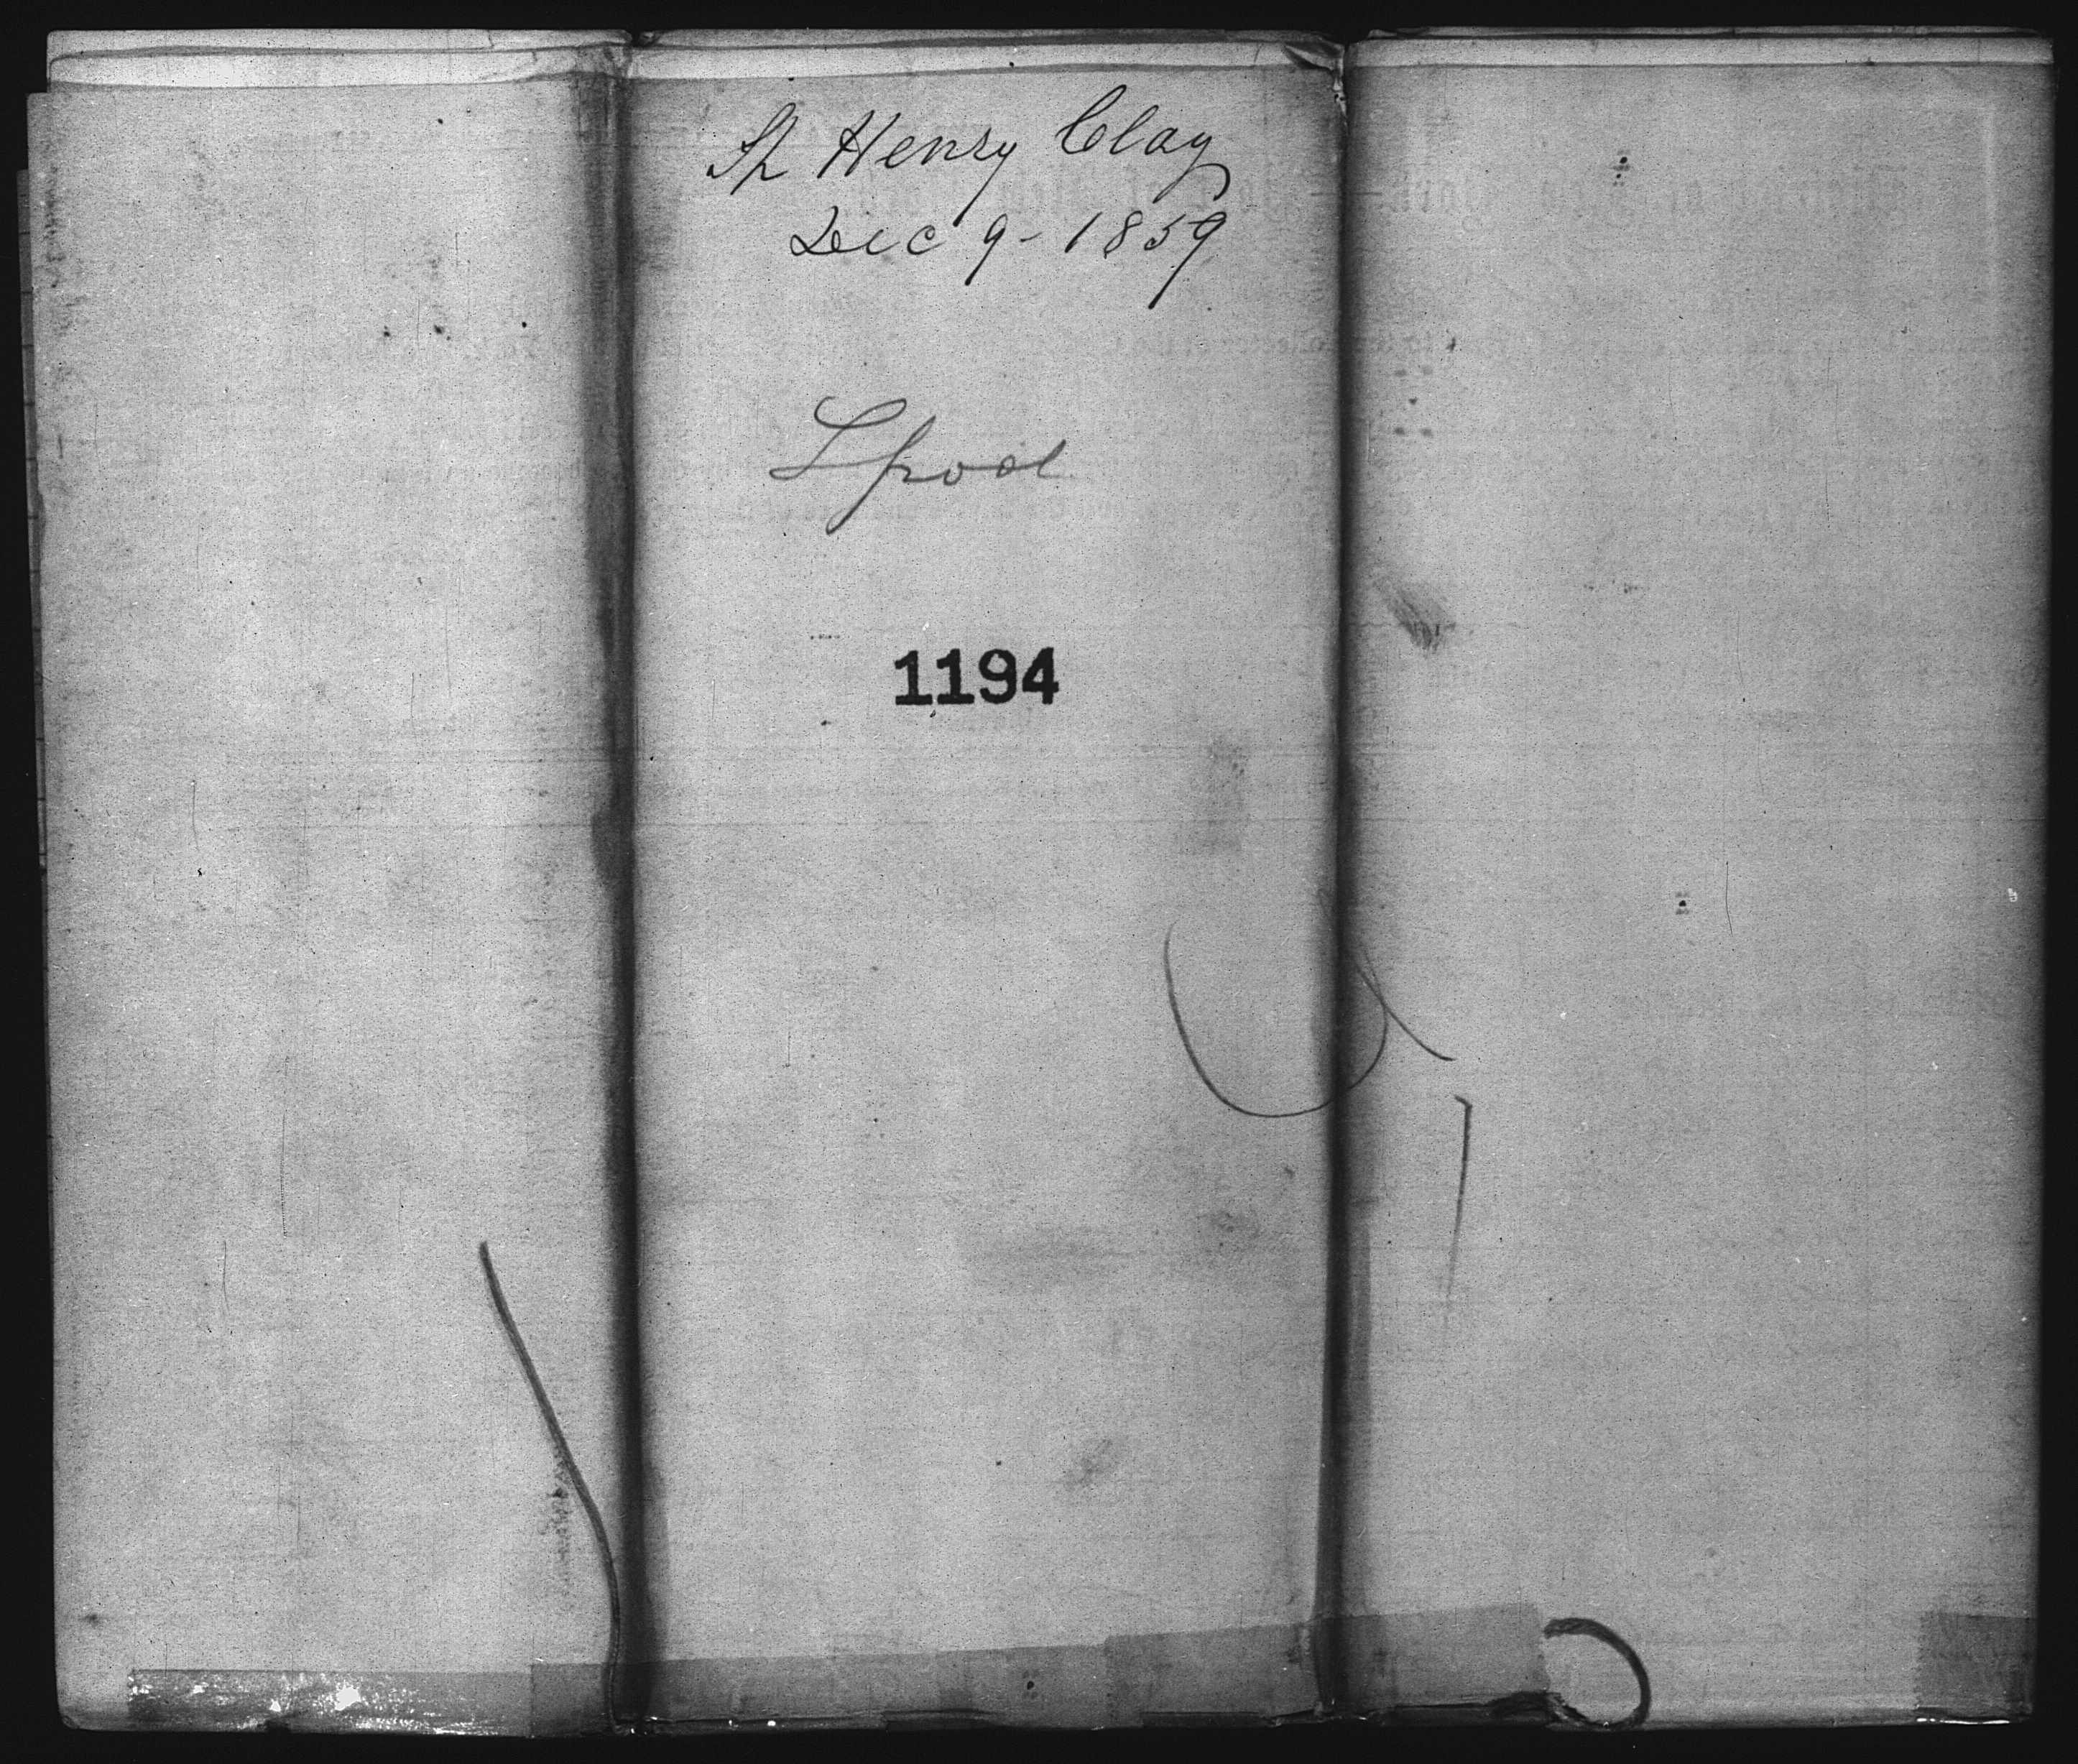 Sh Henry Clay
Dec 9 - 1859
Lpool
1194